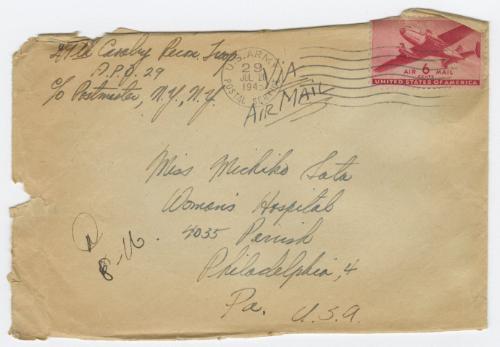 29th Cavalry Recon. Trop.
A.P.O. 29
c/o Postmaster, N.Y., N.Y.
U.S. ARMY
29
JUL
1945
POSTAL SERVICE
VIA
AIR MAIL
AIR 6 MAIL
CENTS
UNITED STATES OF AMERICA
Miss Michiko Sata
Woman's Hospital
4035 Parrish
Philadelphia, 4
Pa. U.S.A.
8-16